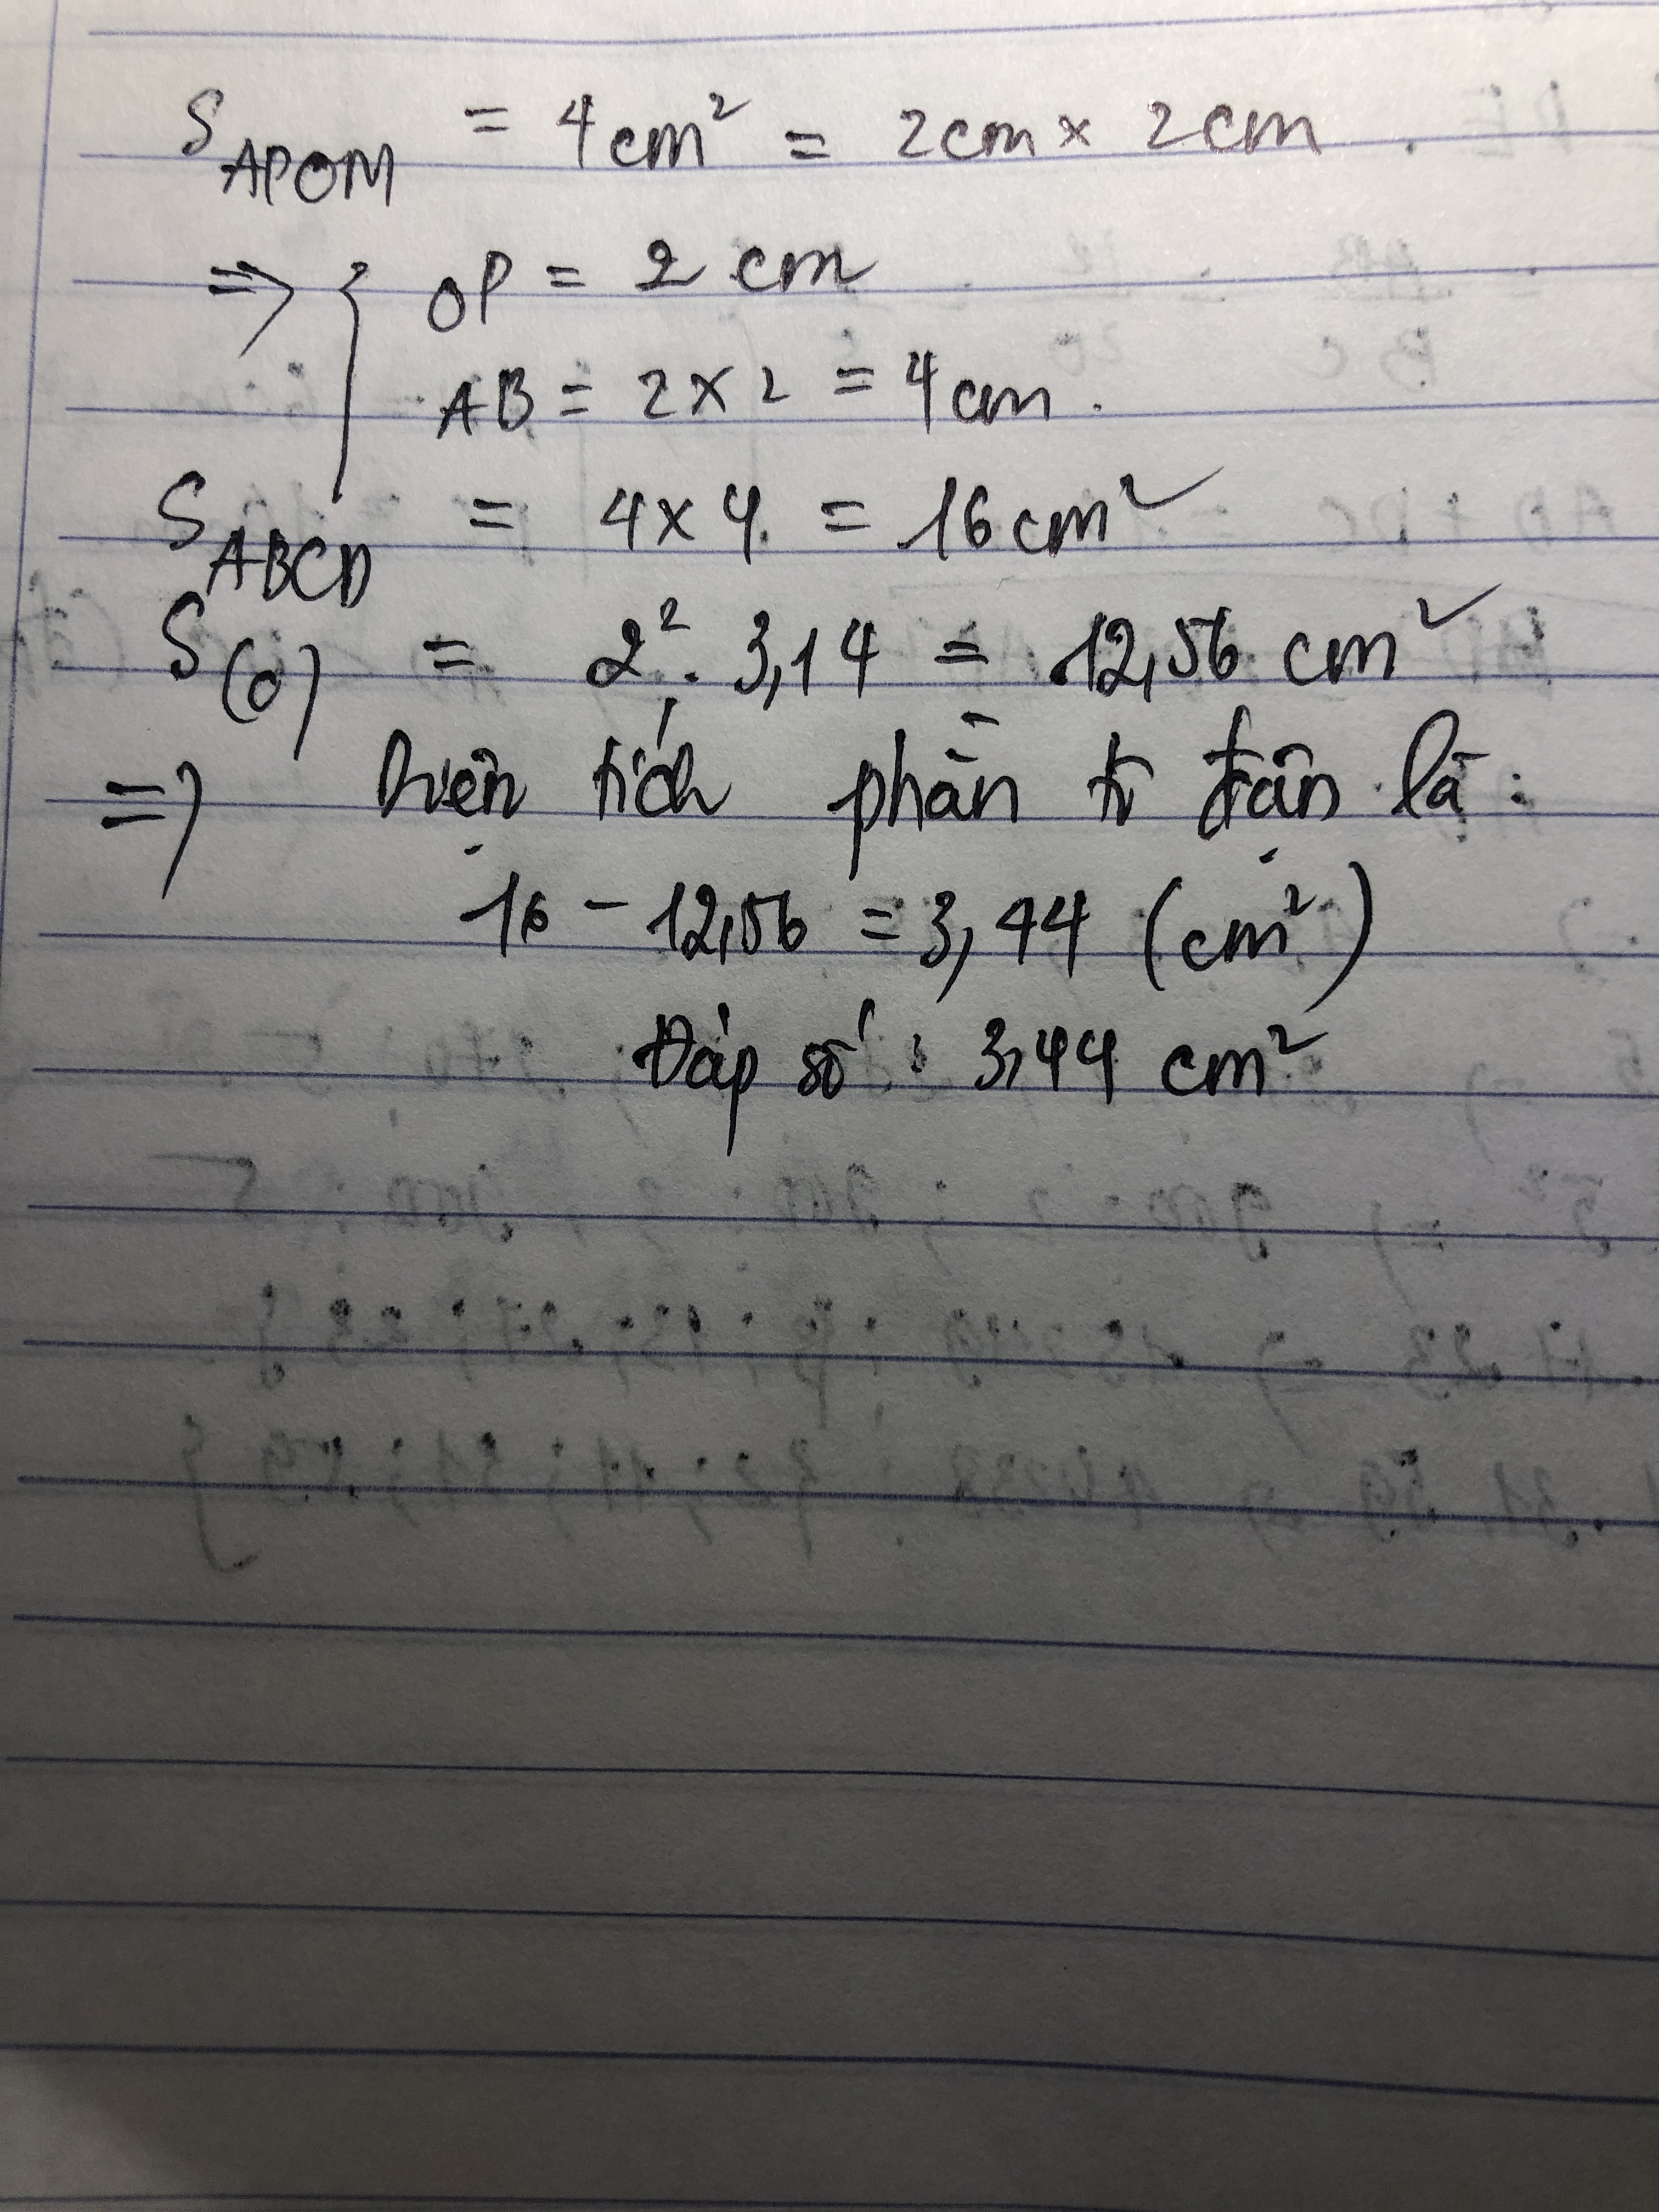 S APOM = 4cm² = 2cm × 2cm
=> { OP = 2 cm
AB = 2 × 2 = 4cm.
S ABCD = 4 × 4 = 16cm²
S (O) = 2² . 3,14 = 12,56 cm²
=> Diện tích phần tô đậm là:
16 - 12,56 = 3,44 (cm²)
Đáp số : 3,44 cm²